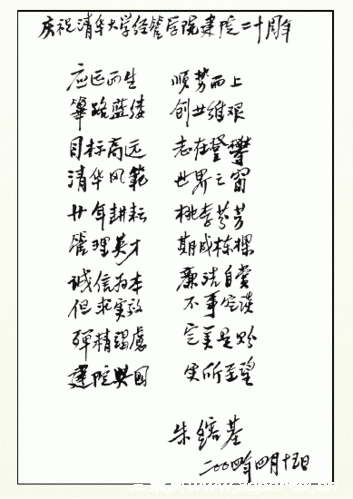 庆祝清华大学经管学院建院二十周年
应运而生 顺势而上
筚路蓝缕 创业维艰
目标高远 志在登攀
清华风範 世界之窗
廿年耕耘 桃李芬芳
管理英才 期成栋梁
诚信为本 廉洁自
但求实效 不事空谈
殫精竭慮 完美是盼
建院興国 实所至望
朱镕基
二〇〇四年四月十五日